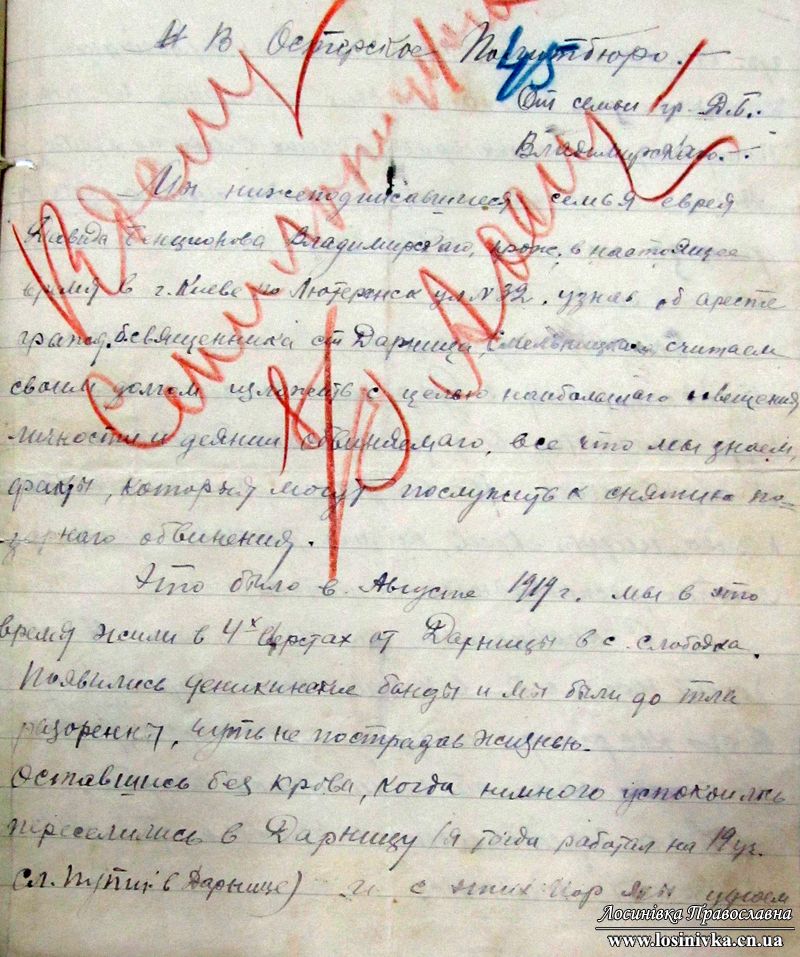 В Остерское Политбюро.
45
От семьи гр. Д.Б.
Владимирскаго.
Мы нижеподписавшиеся семья еврея
Давида Бенционова Владимирскаго, прож. в настоящее
время в г. Киеве по Лютеранск ул № 32, узнав об аресте
гражд. б. священника ст. Дарница, Смельницкаго, считаем
своим долгом изложить с целью наибольшаго освещения
личности и деяний обвиняемаго, все что мы знаем,
факты, которыя могут послужить к снятию по-
зорнаго обвинения.
Это было в Августе 1919 г. мы в это
время жили в 4х верстах от Дарницы в с. Слободка.
Появились деникинские банды и мы были до тла
разорены, чуть не пострадав жизнью.
Оставшись без крова, когда немного успокоилось
переселились в Дарницу (я тогда работал на 19 уч.
Сл. Пути в Дарнице) и с этих пор мы узнаем
Лосинівка Православна
www.losinivka.cn.ua